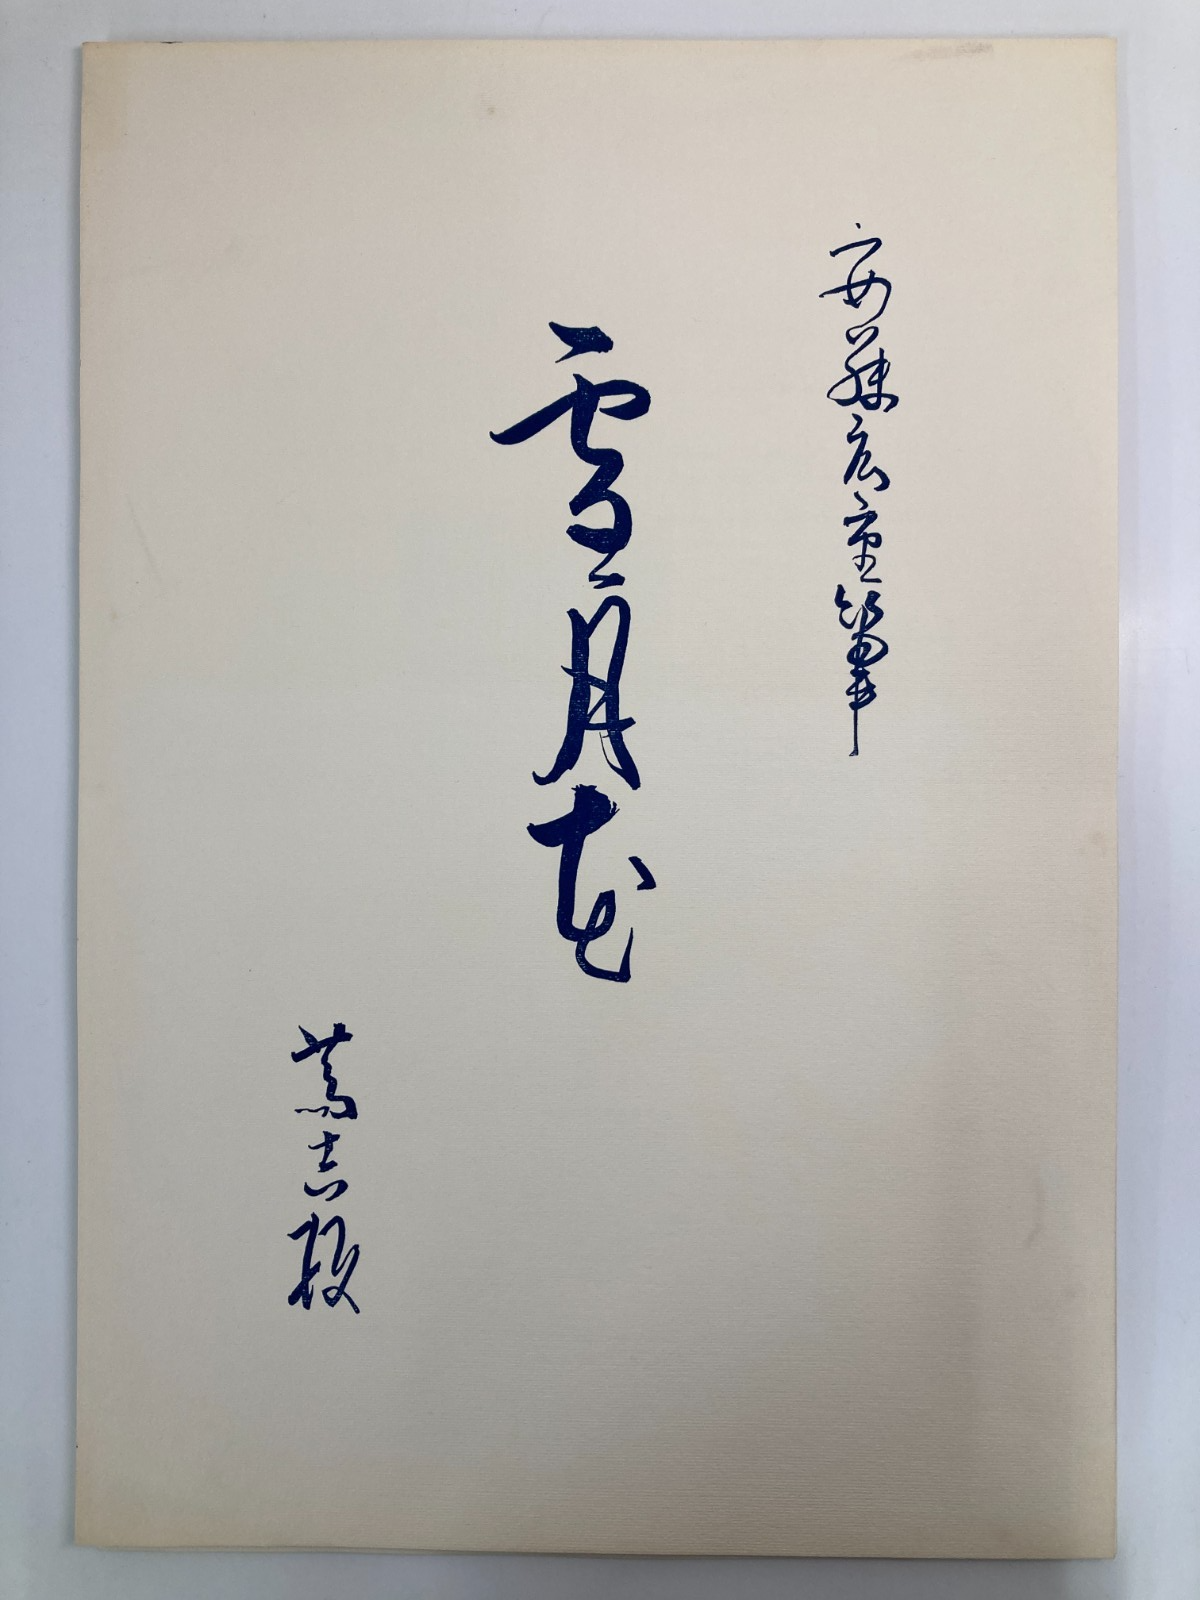 安藤広重筆
雪月花
蔦吉板